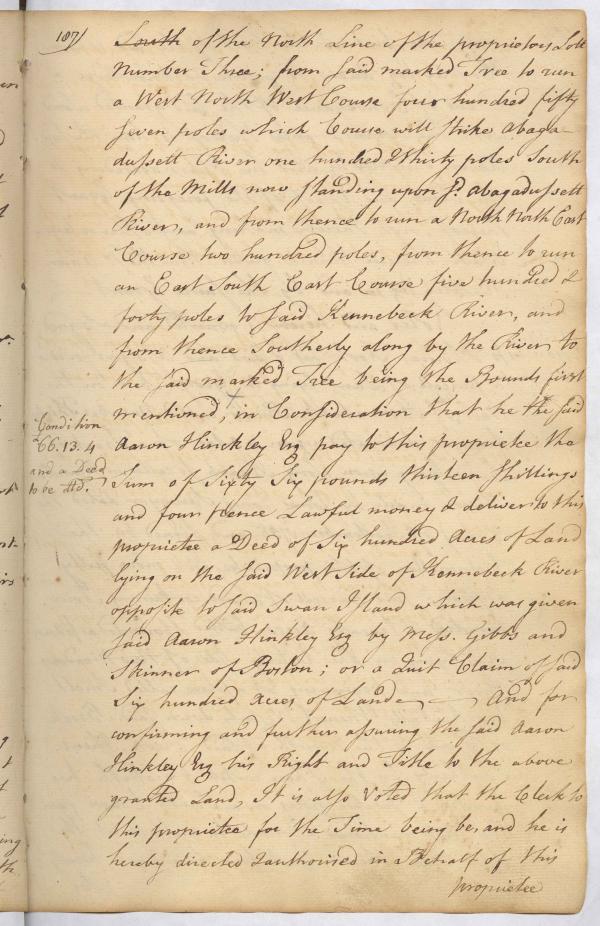 107
South of the North Line of the proprietors Lott
Number Three; from said marked Tree to run
a West North West Course four hundred fifty
seven poles which Course will strike abaga-
dussett River one hundred & thirty poles South
of the Mills now standing upon sd. abagadussett
River, and from thence to run a North North East
Course two hundred poles, from thence to run
an East South East Course five hundred &
forty poles to said Kennebeck River, and
from thence Southerly along by the River to
the said marked Tree being the Bounds first
mentioned, in Consideration that he the said
Condition
£66.13.4
and a Deed
to be dd.
Aaron Hinckley Esq pay to this proprietee the
Sum of Sixty Six pounds thirteen shillings
and four pence Lawful money & deliver to this
proprietee a Deed of Six hundred Acres of Land
lying on the said West side of Kennebeck River
opposite to said Swan Island which was given
said Aaron Hinkley Esq by Mess. Gibbs and
Skinner of Boston; or a Quit Claim of said
Six hundred acres of Land And for
confirming and further assuring the said Aaron
Hinkley Esq his Right and Title to the above
granted Land, It is also Voted that the Clerk to
this proprietee for the Time being be, and he is
hereby directed & authorised in Behalf of this
proprietee